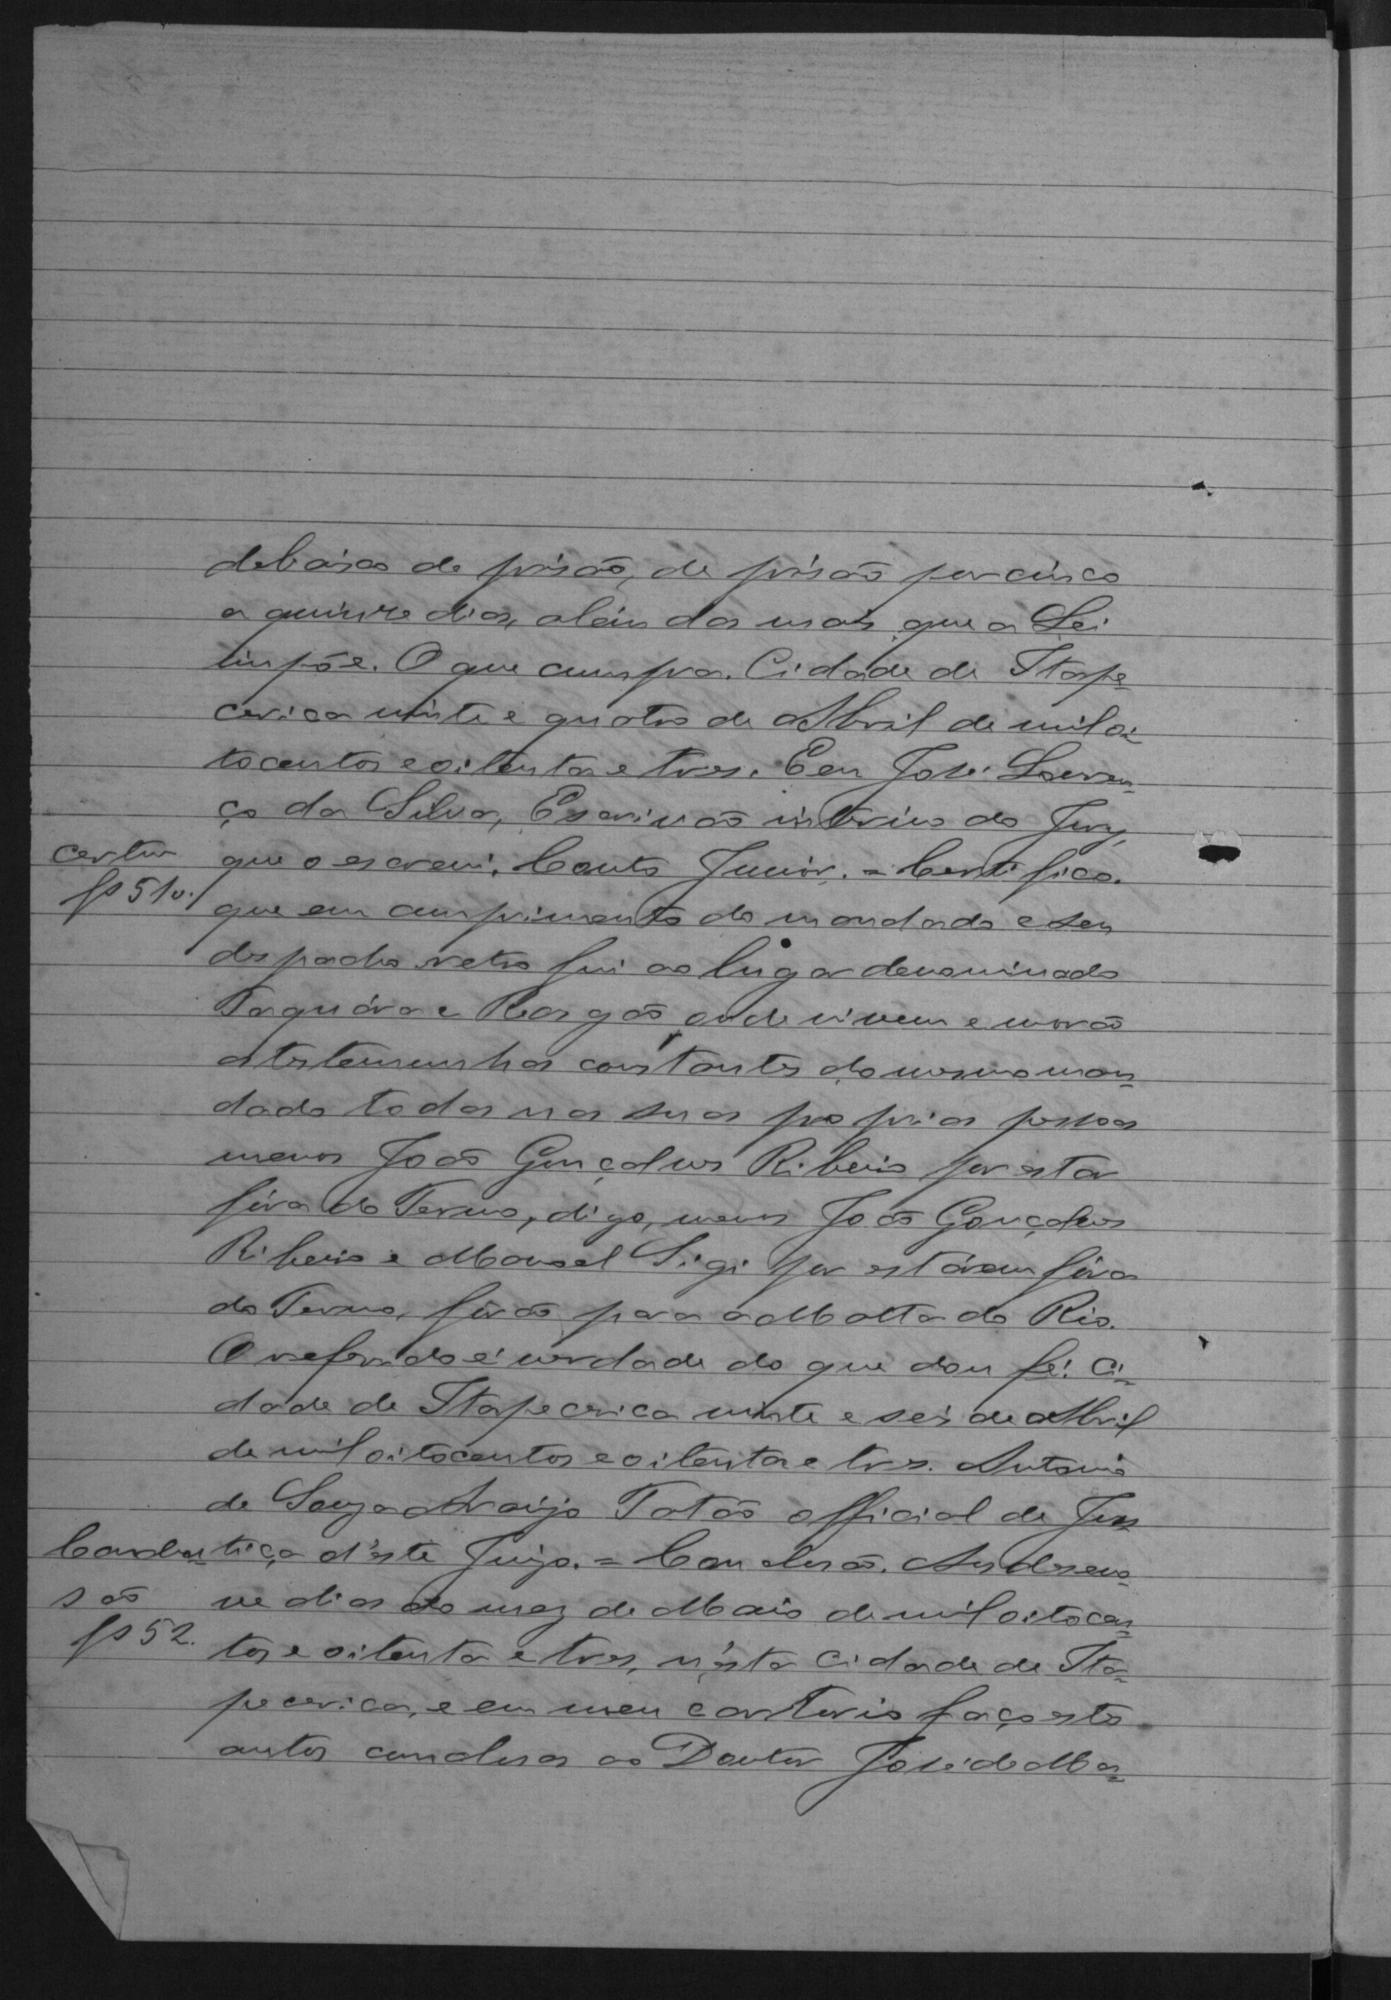 debaixo de prisão, de prisão por cinco
a quinze dias, alem das mais que a Lei
impõe. O que cumpra. Cidade de Itape-
cerica vinte e quatro de Abril de mil oi-
tocentos e oitenta e tres. Eeu José Louren-
ço da Silva, Escrivão interino do Jury,
certm que o escrevi. Couto Junior. = Certifico.
fs 51v. que em cumprimento do mandado e seu
despacho retro fui ao lugar denominado
Taquára e Rasgão onde vivem e morão
as testemunhas constantes do mesmo man-
dado todas nas suas proprias pessoas
menos João Gonçalves Ribeiro por estar
fóra do Termo, digo, menos João Gonçalves
Ribeiro e Manoel Gigi por estárem fóra
do Termo, forão para a Matta do Rio.
O referido é verdade do que dou fé. Ci-
dade de Itapecerica vinte e seis de Abril
de mil oitocentos e oitenta e tres. Antonio
de Souza Araujo Tatão official de Jus
Conclu- tiça d'este Juizo. = Conclusão. Aos deseno-
são ve dias do mez de Maio de mil oitocen-
fs 52. tos e oitenta e tres, n'ésta Cidade de Ita-
pecerica, e em meu cartorio faço estes
autos conclusos ao Doutor José de Ma-